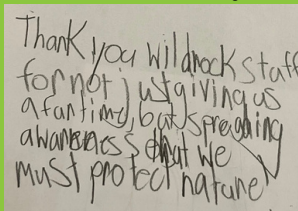 Thank you Wildrock staff
for not just giving us
a fun time, but spreading
awareness that we
must protect nature